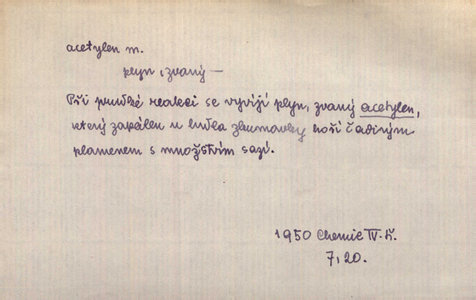 acetylen m.
plyn, zvaný —
Při prudké reakci se vyvíjí plyn, zvaný acetylen,
který zapálen u hrdla zkumavky hoří čadivým
plamenem s množstvím sazí.
1950 Chemie IV.
7, 20.